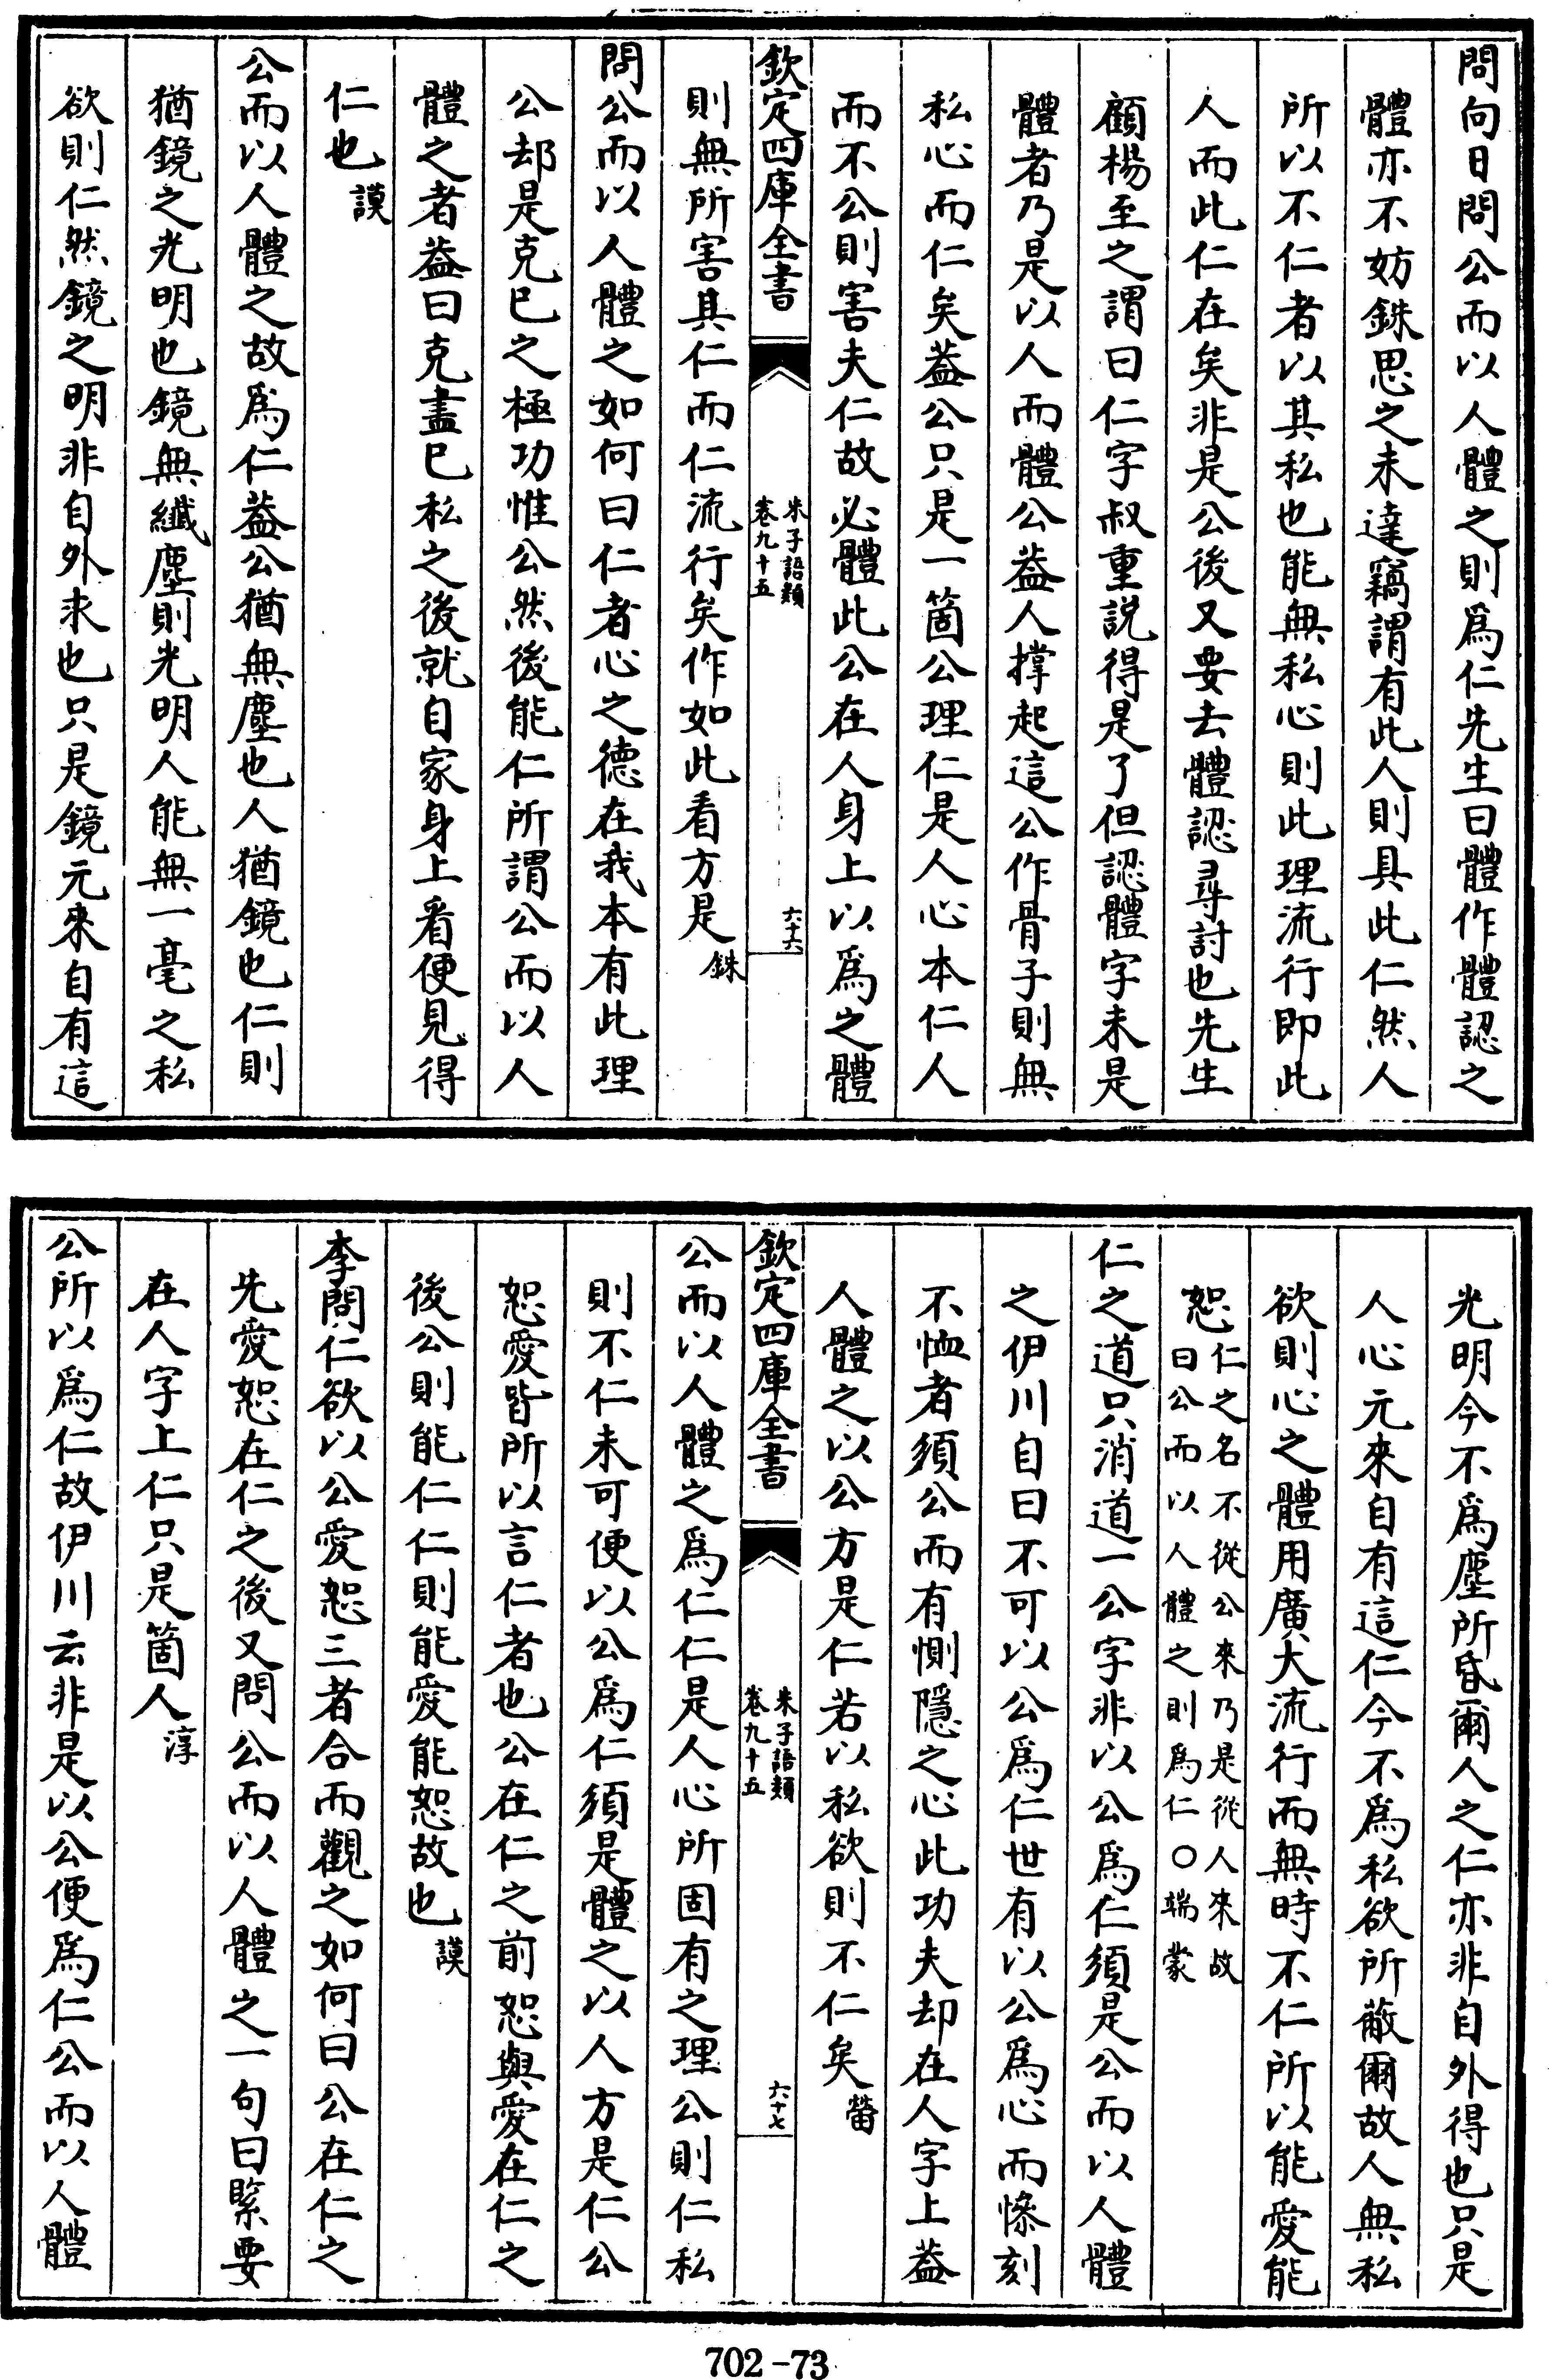 問向日問公而以人體之則爲仁先生曰體作體認之
體亦不妨銖思之未達竊謂有此人則具此仁然人
所以不仁者以其私也能無私心則此理流行即此
人而此仁在矣非是公後又要去體認尋討也先生
顧楊至之謂曰仁字叔重説得是了但認體字未是
體者乃是以人而體公葢人撑起這公作骨子則無
私心而仁矣葢公只是一箇公理仁是人心本仁人
而不公則害夫仁故必體此公在人身上以爲之體
欽定四庫全書
朱子語類
卷九十五
六十六
則無所害其仁而仁流行矣作如此看方是銖
問公而以人體之如何曰仁者心之德在我本有此理
公却是克已之極功惟公然後能仁所謂公而以人
體之者葢曰克盡已私之後就自家身上看便見得
仁也謨
公而以人體之故爲仁葢公猶無塵也人猶鏡也仁則
猶鏡之光明也鏡無纎塵則光明人能無一毫之私
欲則仁然鏡之明非自外求也只是鏡元來自有這
光明今不爲塵所昏爾人之仁亦非自外得也只是
人心元來自有這仁今不爲私欲所蔽爾故人無私
欲則心之體用廣大流行而無時不仁所以能愛能
恕仁之名不從公來乃是從人來故
曰公而以人體之則爲仁○端蒙
仁之道只消道一公字非以公爲仁須是公而以人體
之伊川自曰不可以公爲仁世有以公爲心而慘刻
不恤者須公而有惻隱之心此功夫却在人字上葢
人體之以公方是仁若以私欲則不仁矣䕫
欽定四庫全書
朱子語類
卷九十五
六十七
公而以人體之爲仁仁是人心所固有之理公則仁私
則不仁未可便以公爲仁須是體之以人方是仁公
恕愛皆所以言仁者也公在仁之前恕與愛在仁之
後公則能仁仁則能愛能恕故也謨
李問仁欲以公愛恕三者合而觀之如何曰公在仁之
先愛恕在仁之後又問公而以人體之一句曰緊要
在人字上仁只是箇人淳
公所以爲仁故伊川云非是以公便爲仁公而以人體
702-73